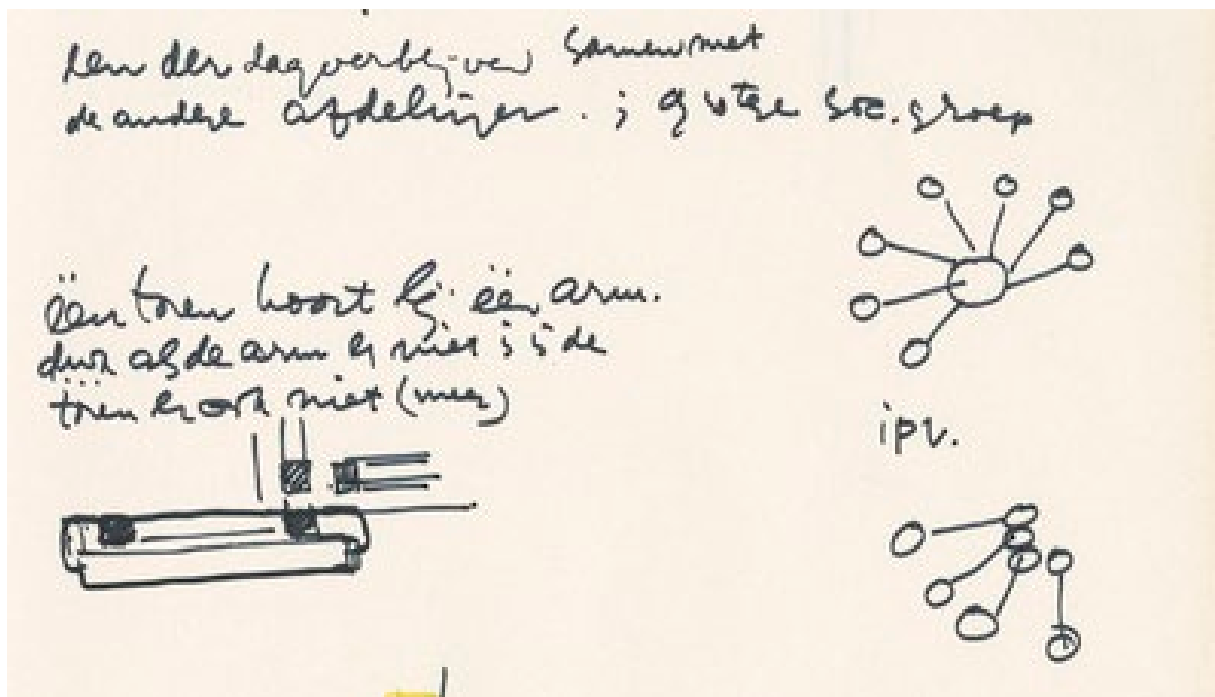 samen met
de andere afdelingen . ; grotere soc. groep
één toren hoort bij één arm.
dus als de arm er niet is is de
toren er ook niet (meer)
ipv.